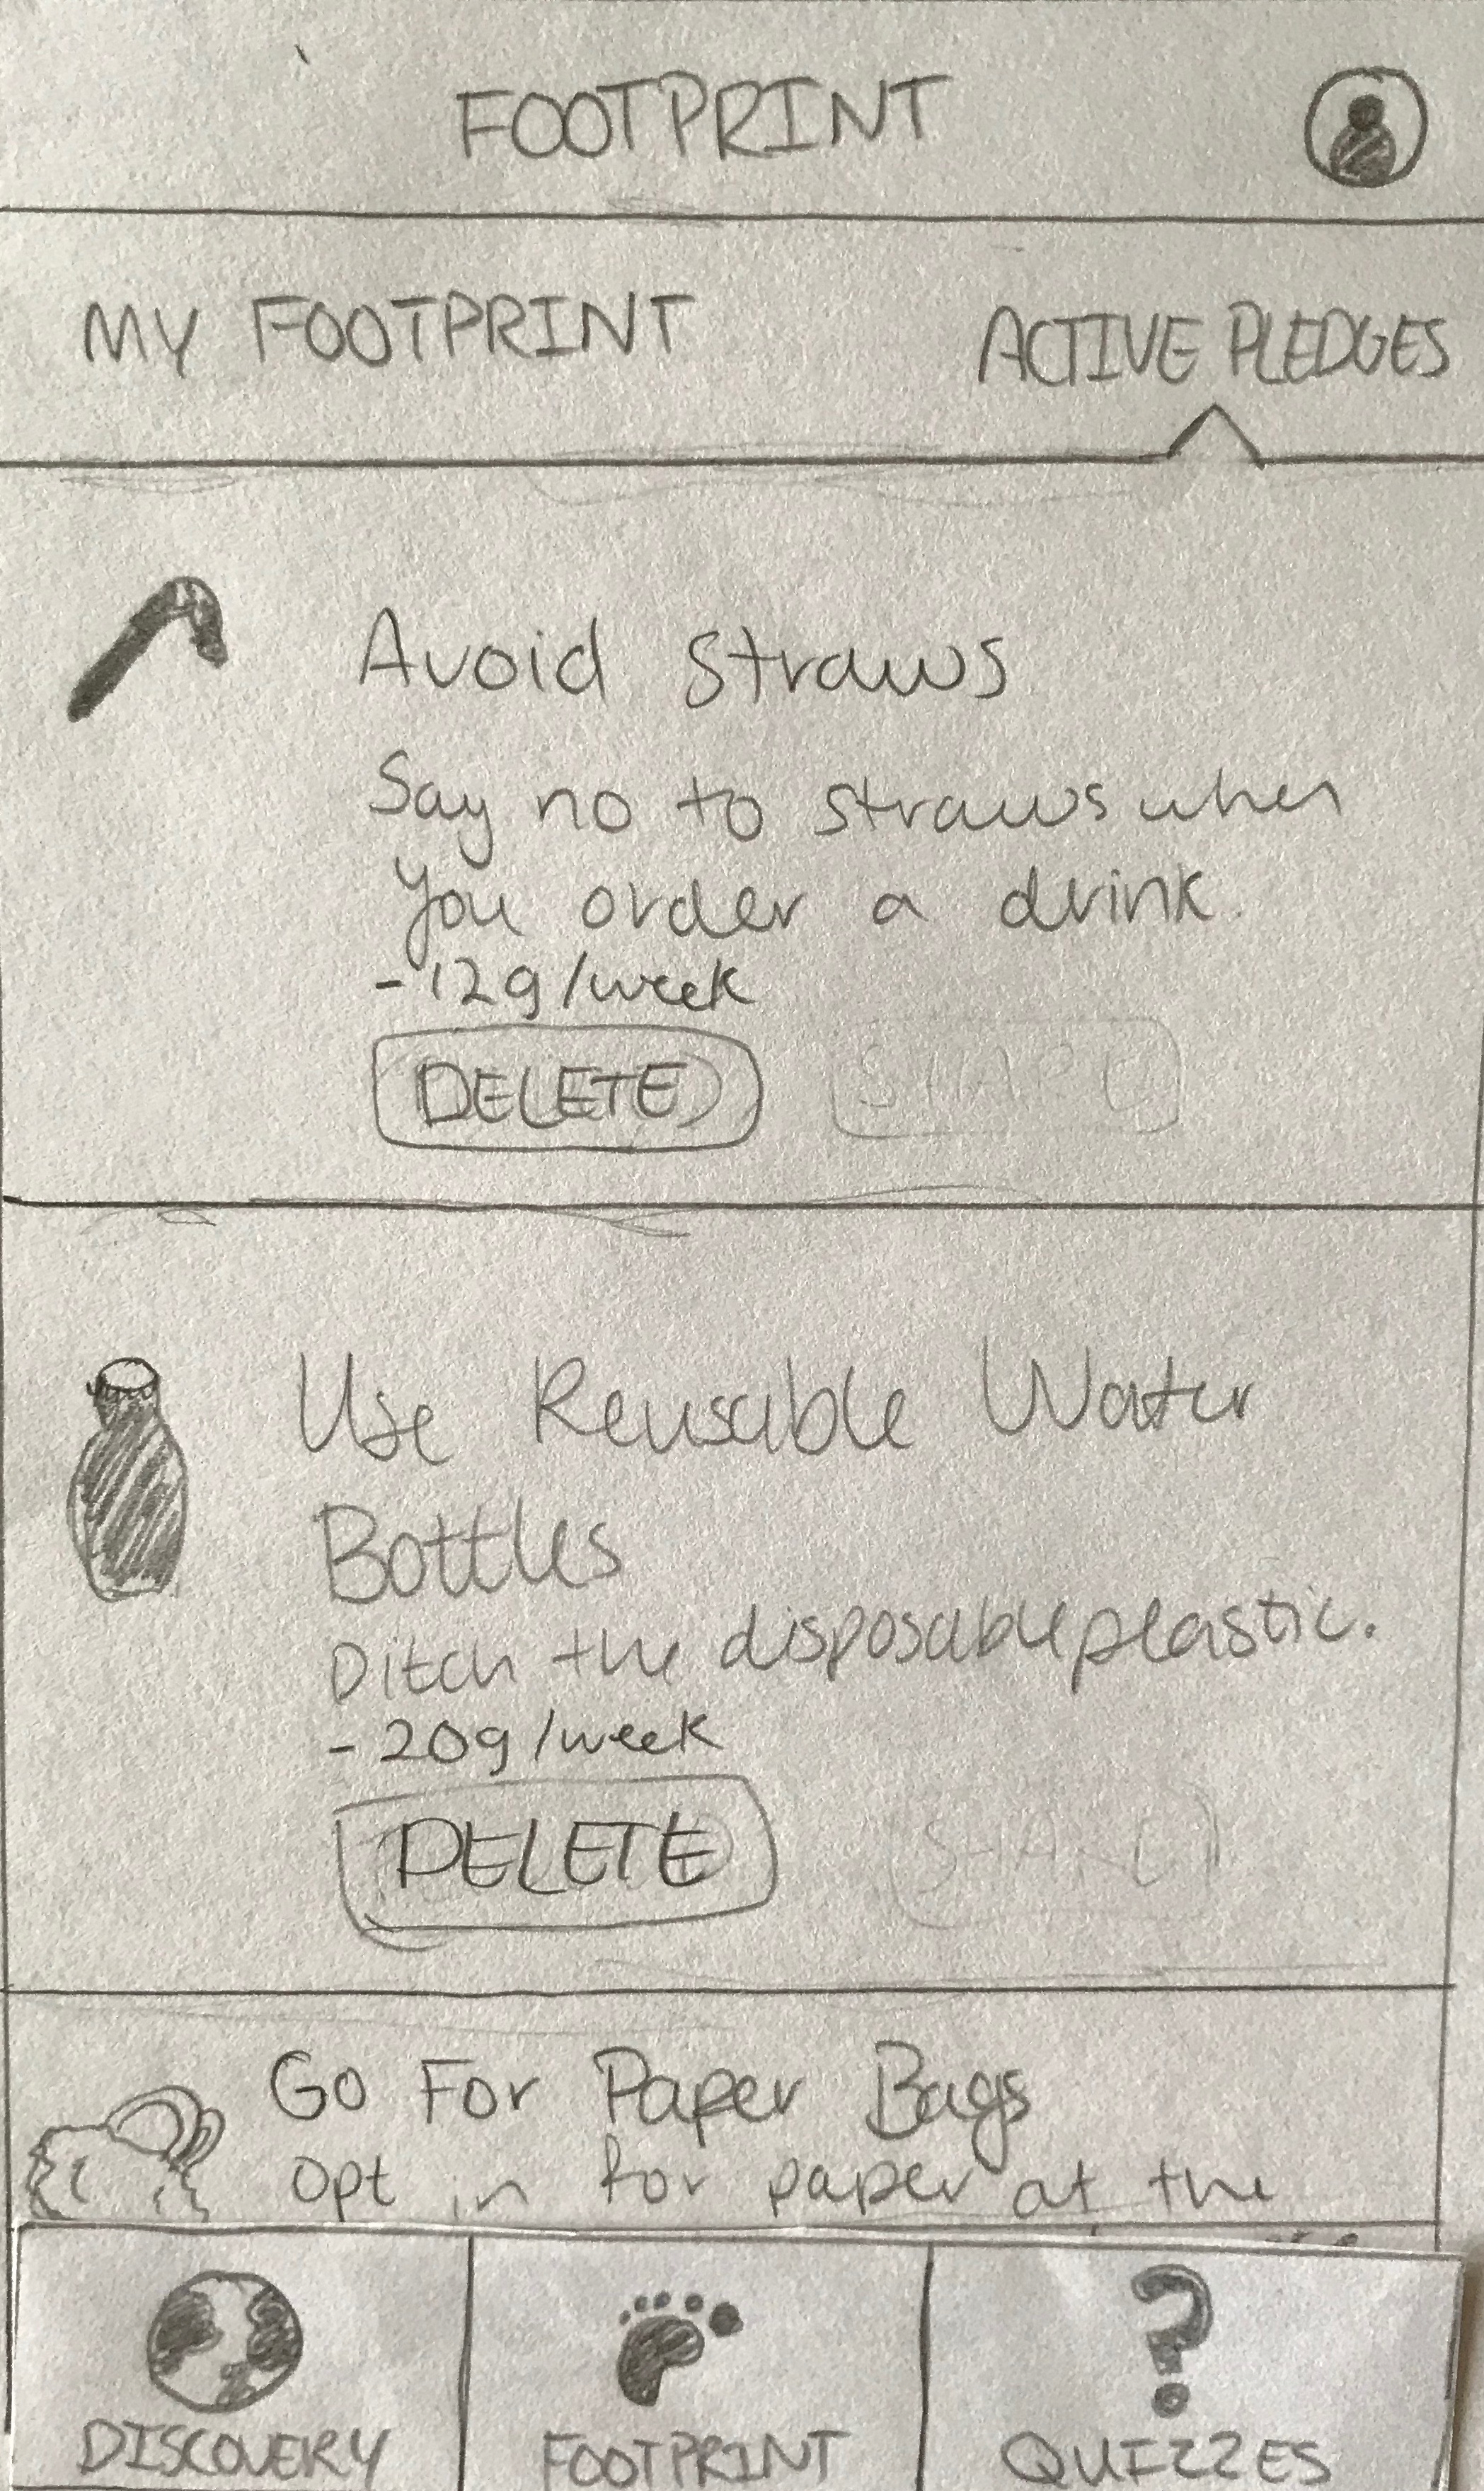 FOOTPRINT
MY FOOTPRINT
ACTIVE PLEDGES
Avoid straws
Say no to straws when
you order a drink.
-12g/week
DELETE
SHARE
Use Reusable Water
Bottles
Ditch the disposable plastic.
-20g/week
DELETE
SHARE
Go For Paper Bags
Opt in for paper at the
DISCOVERY
FOOTPRINT
QUIZZES